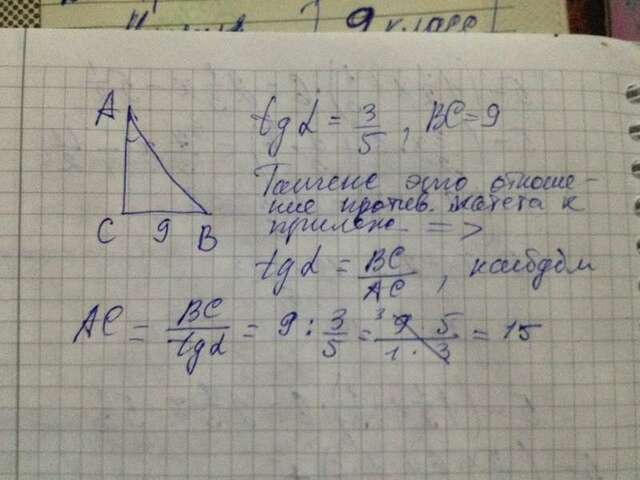 9 класс
A
C 9 B
tg α = 3/5, BC = 9
Тангенс это отноше-
ние против. катета к
прилеж. =>
tg α = BC/AC, найдём
AC = BC/tg α = 9 : 3/5 = 9 · 5/1 · 3 = 15